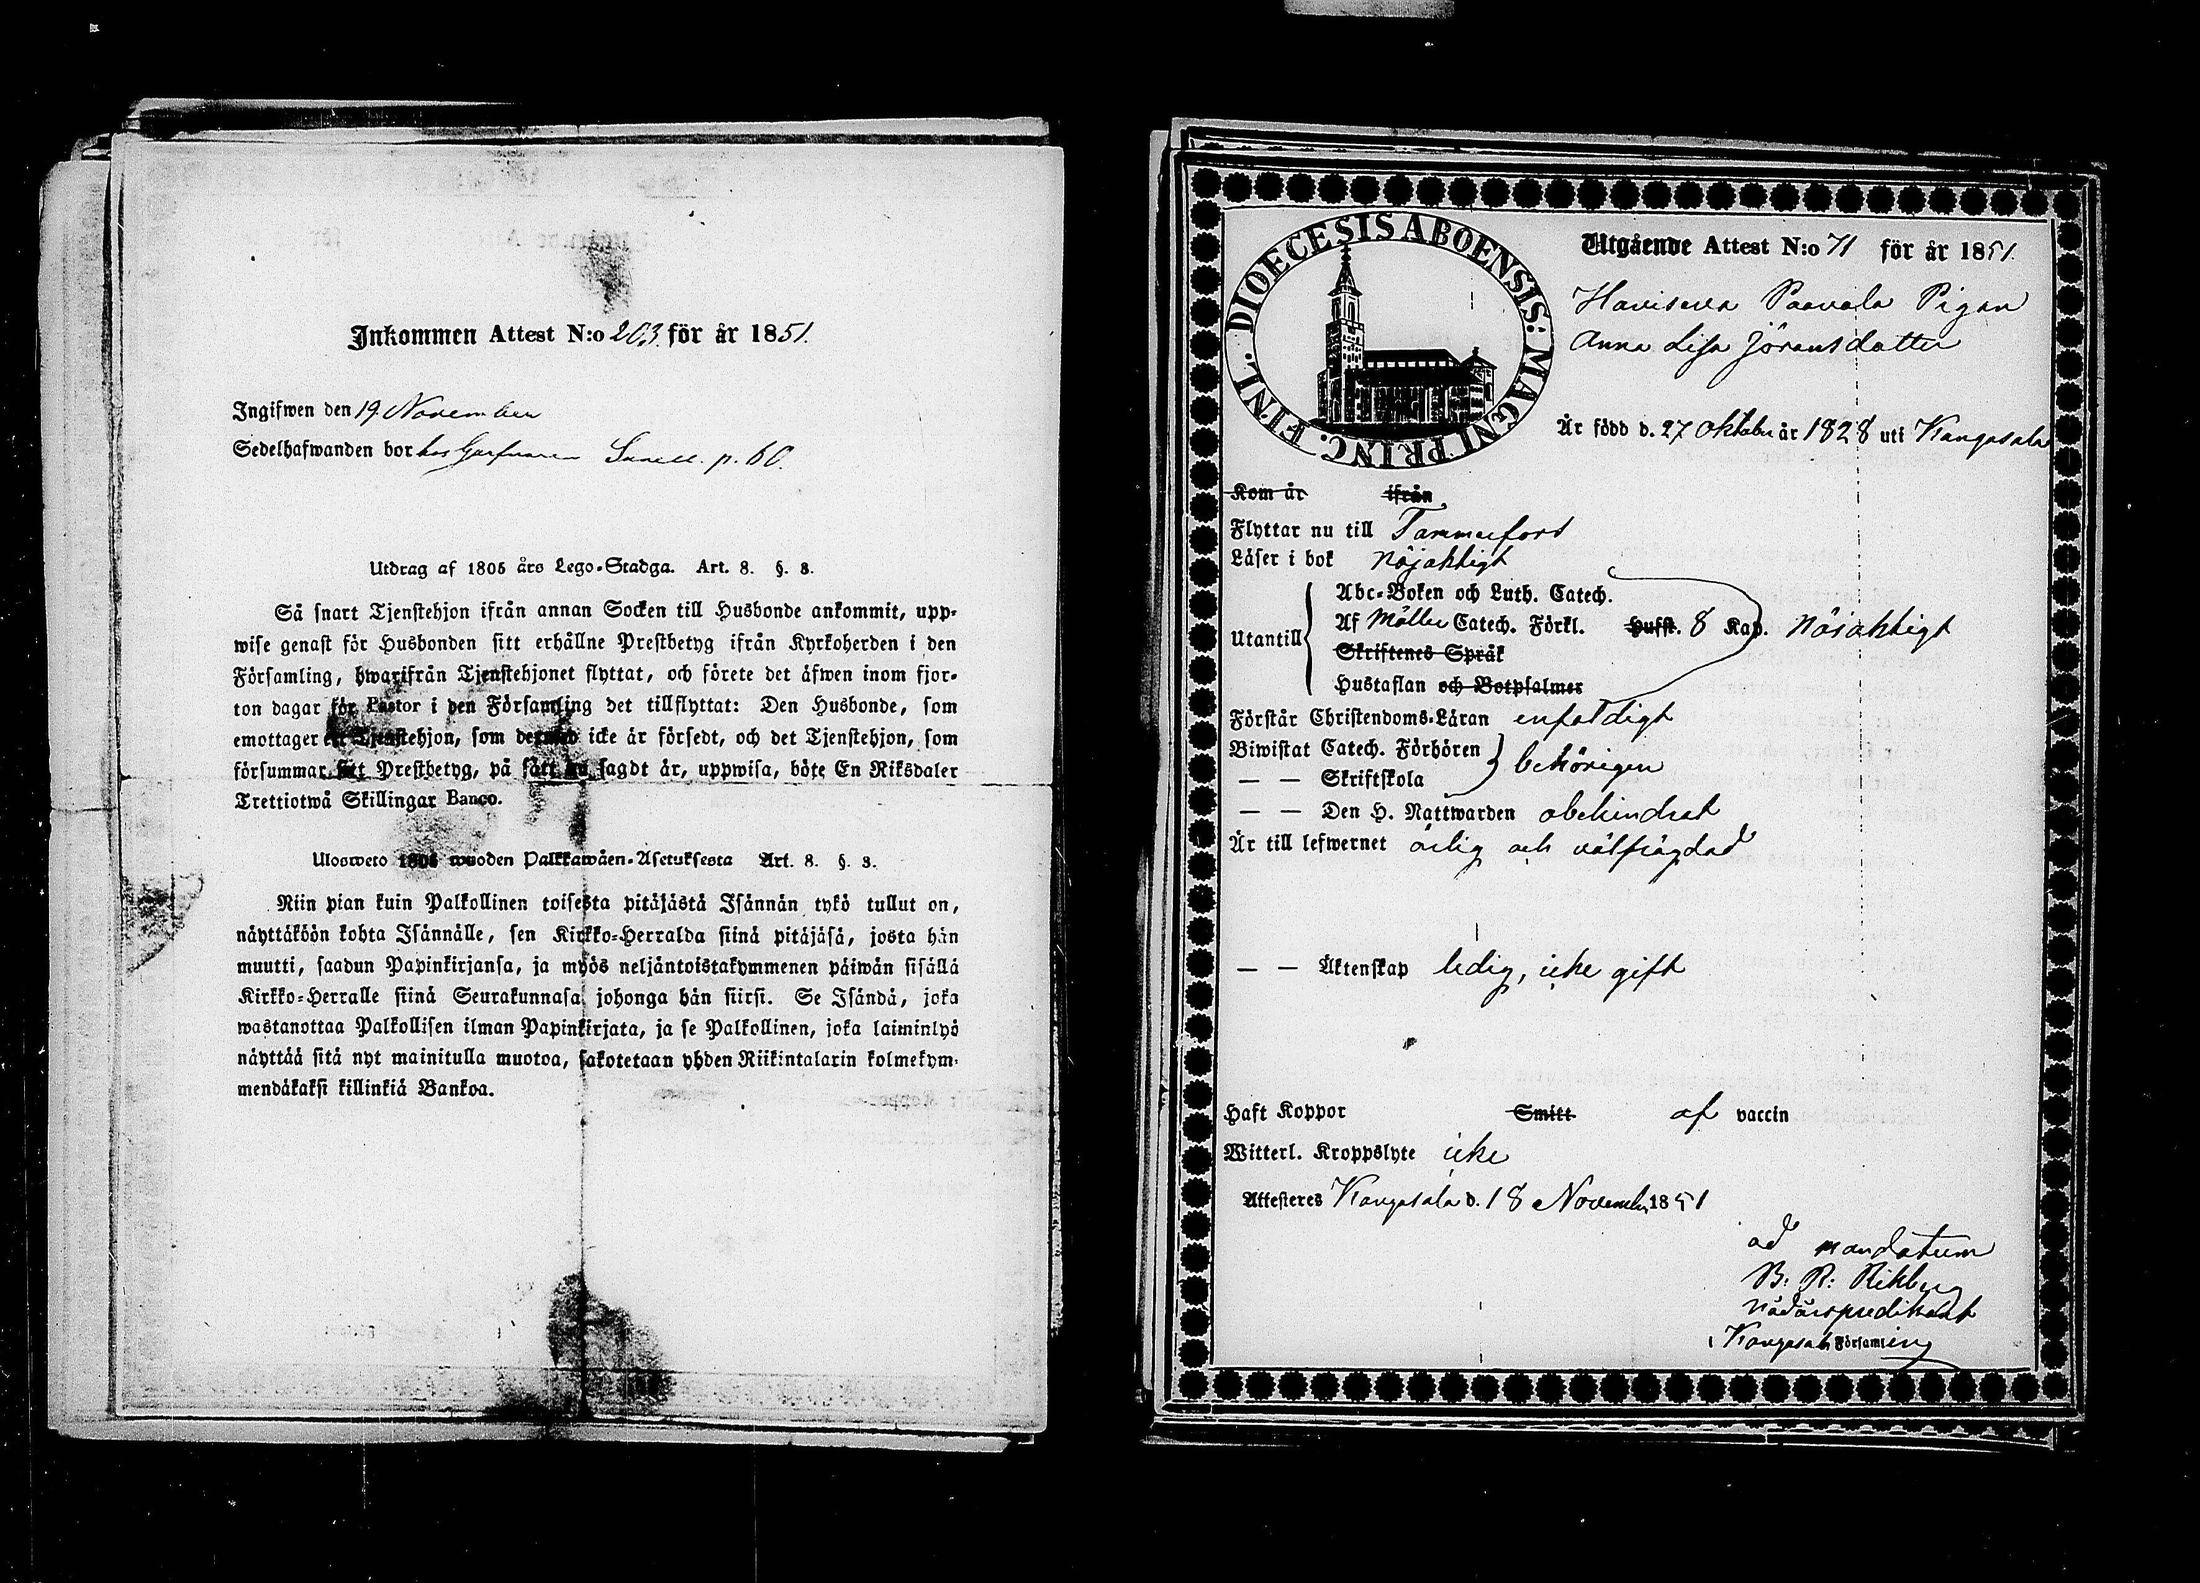 Inkommen Attest N:o 203. för år 1851.
Ingifwen den 19 November
Sedelhafwanden bor hos Garfvaren Sunell. p. 60.
Utdrag af 1805 års Lego-Stadga. Art. 8. §. 8.
Så snart Tjenstehjon ifrån annan Socken till Husbonde ankommit, upp-
wise genast för Husbonden sitt erhållne Prestbetyg ifrån Kyrkoherden i den
Församling, hwarifrån Tjenstehjonet flyttat, och förete det äfwen inom fjor-
ton dagar för Pastor i den Församling det tillflyttat: Den Husbonde, som
emottager ett Tjenstehjon, som dermed icke är försedt, och det Tjenstehjon, som
försummar sitt Prestbetyg, på sätt nu sagdt är, uppwisa, böte En Riksdaler
Trettiotwå Skillingar Banco.
Ulosweto 1805 wuoden Palkkawäen-Asetuksesta Art. 8. §. 8.
Niin pian kuin Palkollinen toisesta pitäjästä Isännän tykö tullut on,
näyttäköön kohta Isännälle, sen Kirkko-Herralda siinä pitäjäsä, josta hän
muutti, saadun Papinkirjansa, ja myös neljäntoistakymmenen päiwän sisällä
Kirkko-Herralle siinä Seurakunnasa johonga hän siirsi. Se Isändä, joka
wastanottaa Palkollisen ilman Papinkirjata, ja se Palkollinen, joka laiminlyö
näyttää sitä nyt mainitulla muotoa, sakotetaan yhden Riikintalarin kolmekym-
mendäkaksi killinkiä Bankoa.
DIOECESIS ABOENSIS: MAGNI PRINC. FINL.
Utgående Attest N:o 71 för år 1851.
Havisева Paavola Pigan
Anna Lisa Jöransdotter
Är född d. 27 Oktober år 1828 uti Kangasala
Kom år ifrån
Flyttar nu till Tammerfors
Läser i bok nöjaktigt
Abc-Boken och Luth. Catech.
Utantill Af Möller Catech. Förkl. Hufst. 8 Kap. nöjaktigt
Skriftenes Språk
Hustaflan och Botpsalmer
Förstår Christendoms-Läran enfaldigt
Biwistat Catech. Förhören
— — Skriftskola behörigen
— — Den H. Nattwarden obehindrat
Är till lefwernet ärlig och välfrägdad
— — Äktenskap ledig, icke gift
Haft Koppor Smitt af vaccin
Witterl. Kroppslyte icke
Attesteres Kangasala d. 18 November 1851
ad mandatum
B: R: Rikberg
nådårspredikant
i Kangasala Församling